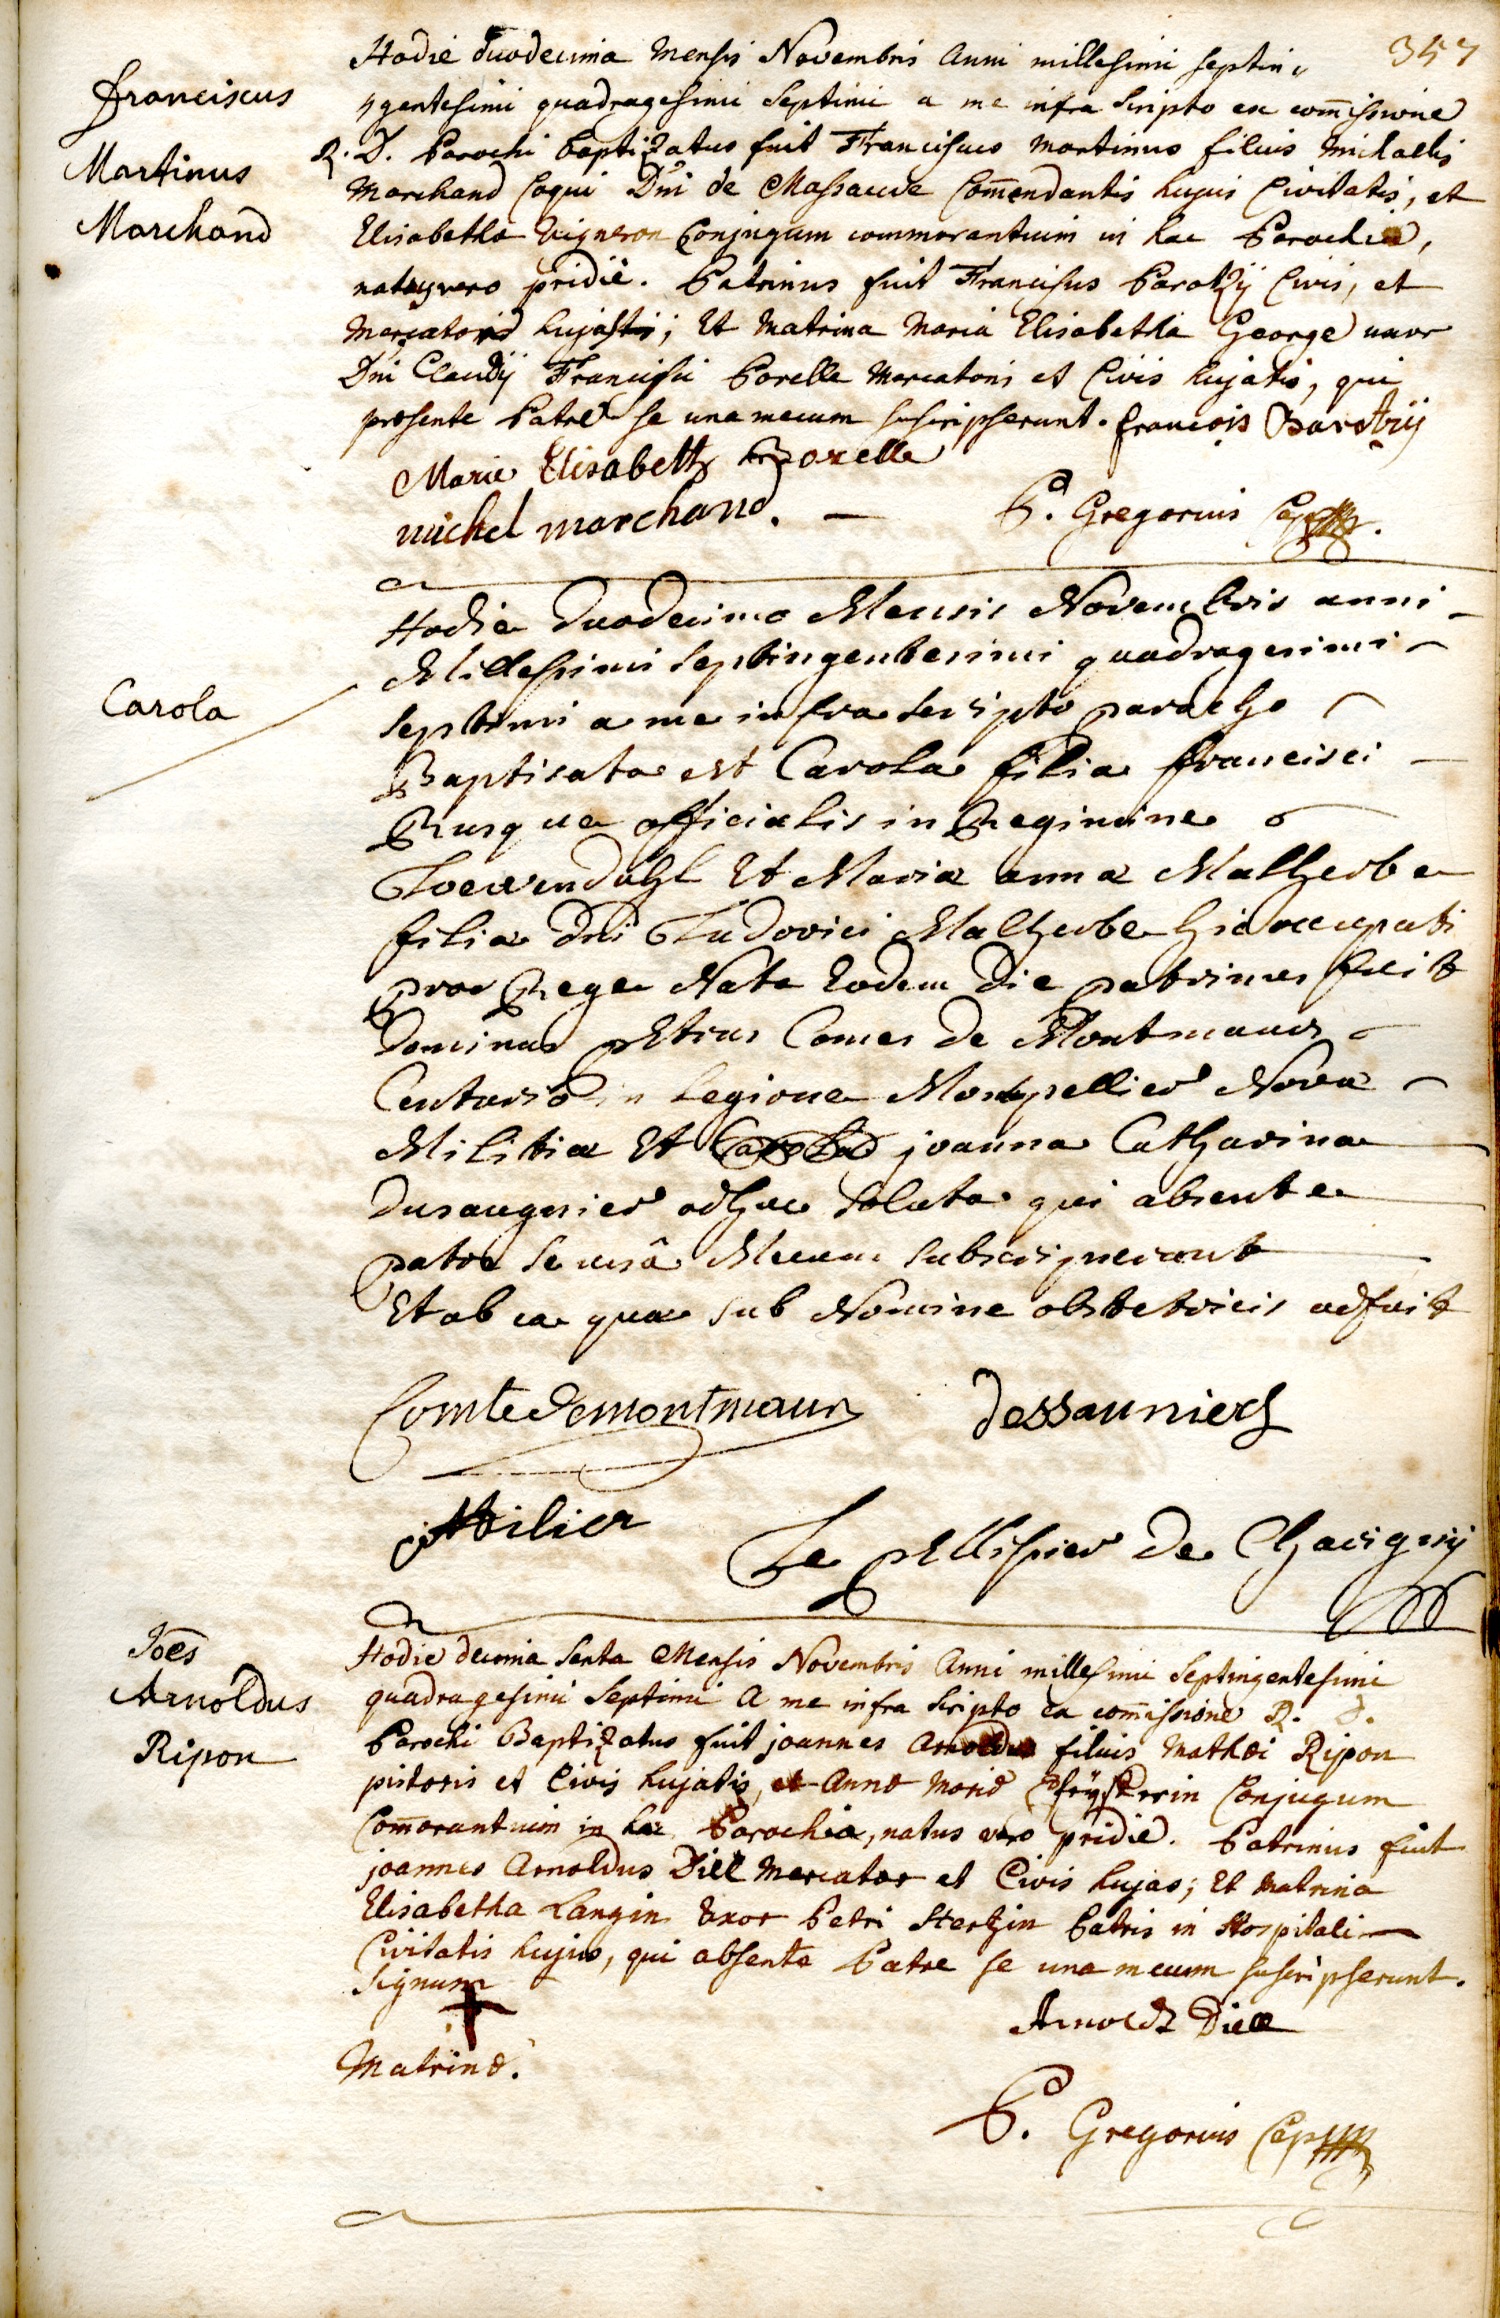 357
Franciscus
Martinus
Marchand
Hodie duodecima Mensis Novembris Anni millesimi septin,
gentesimi quadragesimi Septimi a me infra scripto ex com̄issione
R. D. Parochi baptizatus fuit Franciscus Martinus filius Michaelis
Marchand Coqui Dn̄i de Massauve Com̄endantis hujus Civitatis, et
Elisabetha Vigneron Conjugum commorantium in hac Parochia,
natus vero pridie. Patrinus fuit Franciscus Barotzÿ Civis, et
Mercatoris hujatis; Et Matrina Maria Elisabetha George uxor
Dn̄i Claudÿ Francisci Borelle Mercatoris et Civis hujatis, qui
præsente Patre se una mecum suscripserunt. francois Barotzÿ
Marie Elisabeth Borelle
michel marchand. —
P. Gregorius Cap
Carola
Hodie duodecima Mensis Novembris anni
Millessimi septingentesimi quadragesimi
septimi a me infra scripto parocho
Baptisata est Carola filia francisci
Rusque officialis in Regimine
Loewendahl Et Maria anna Malherbe
filia Dn̄i Ludovici Malherbe hic occupati
pro Rege Nata Eodem die patrinus fuit
Dominus pEtrus Comes de Montmaur
Centurio in Legione Montpellier Nova
Militia Et joanna Catharina
Dusaugnier adhuc soluta qui absente
patre se unâ Mecum subscripserunt
Et ab ea quæ sub Nomine obstetricis adfuit
Comte de montmaur
dessauniers
Le pEllissier de Chavignÿ
Joēs
Arnoldus
Ripon
Hodie decima sexta Mensis Novembris Anni millesimi Septingentesimi
quadragesimi Septimi A me infra scripto ex com̄issione R. D.
Parochi Baptizatus fuit joannes Arnoldus filius Mathæi Ripon
pistoris et Civis hujatis, et Annæ Mariæ Conjugum
Com̄orantium in hac Parochia, natus vero pridie. Patrinus fuit
joannes Arnoldus Diel Mercator et Civis hujas; Et Matrina
Elisabetha Langin Uxor Petri Stertzin Patris in Hospitali
Civitatis hujus, qui absente Patre se una mecum suscripserunt.
Signum
+
Matrinæ.
Arnoldt Diel
P. Gregorius Cap